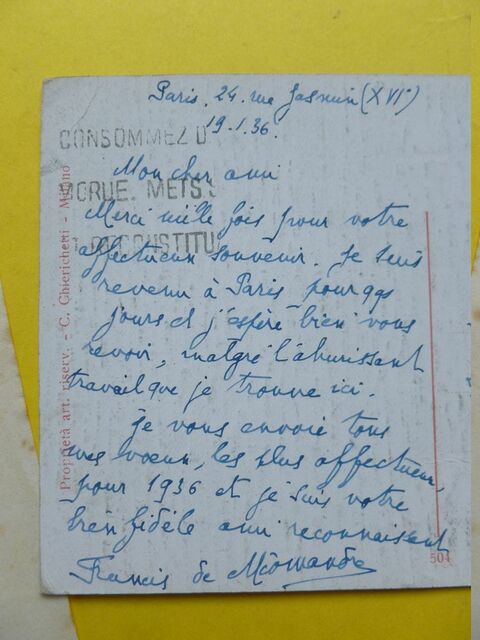 Paris, 24, rue Jasmin (XVIe)
19.1.36.
CONSOMMEZ D
Mon cher ami
MORUE. METS S
Merci mille fois pour votre
RECONSTITU
affectueux souvenir. Je suis
revenu à Paris pour qqs
jours et j'espère bien vous
revoir, malgré l'ahurissant
travail que je trouve ici.
je vous envoie tous
mes vœux, les plus affectueux,
pour 1936 et je suis votre
bien fidèle ami reconnaissant
Francis de Miomandre
Proprietà art. riserv. - C. Chierichetti - Milano
504